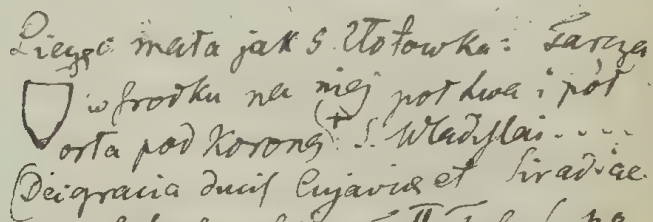 Pieczęć mała jak 5 Złotowka: Tarcza
w środku na niej pół Lwa i pół
orła pod Koroną. + S. Wladyslai....
Dei gracia Ducis Cujavie et Siradiae.